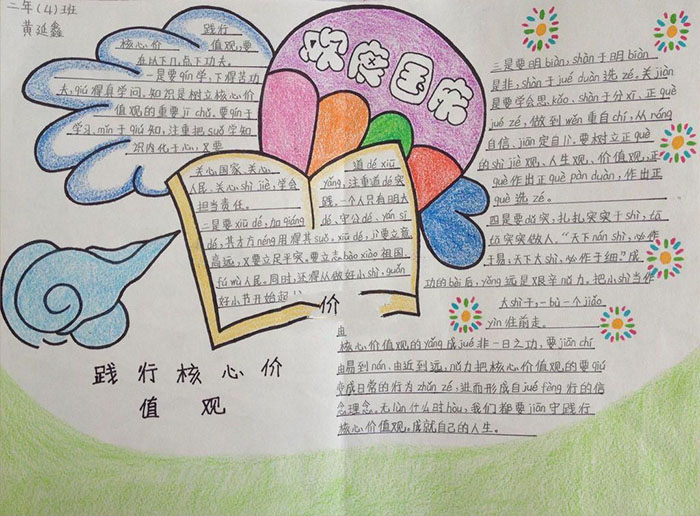 二年(4)班
黄延鑫
践行
核心价值观,要
在以下几点下功夫。
一是要qín学,下得苦功
夫,qiú得真学问。知识是树立核心价
值观的重要jī chǔ。要qín于
学习,mǐn于qiú知,注重把suǒ学知
识内化于心,又要
关心国家、关心
人民、关心shì jiè,学会
担当责任。
二是要xiū dé,加qiáng
道dé xiū
yǎng,注重道dé实
践。一个人只有明大
dé、守公dé、yán sī
dé,其才方néng用得其suǒ。xiū dé,jì要立意
高远,又要立足平实。要立志bào xiào祖国、
fú wù人民。同时,还得从做好小shì、guǎn
好小节开始起
欢庆国庆
三是要明biàn,shàn于明biàn
是非,shàn于jué duàn选zé。关jiàn
是要学会思kǎo、shàn于分xī,正què
jué zé,做到wěn重自chí,从róng
自信、jiān定自lì。要树立正què
的shì jiè观、人生观、价值观,正
què作出正què pàn duàn,作出正
què选zé。
四是要dǔ实,扎扎实实干shì,tà
tà实实做人。“天下nán shì,必作
于易;天下大shì,必作于细”成
功的bèi后,yǒng远是艰辛nǔ力。把小shì当作
大shì干,一步一个jiǎo
yìn往前走。
价
由
核心价值观的yǎng成jué非一日之功,要jiān chí
由易到nán、由近到远,nǔ力把核心价值观的要qiú
变成日常的行为zhǔn zé,进而形成自jué fèng行的信
念理念。无lùn什么时hòu,我们都要jiān守践行
核心价值观。成就自己的人生。
践行核心价
值观